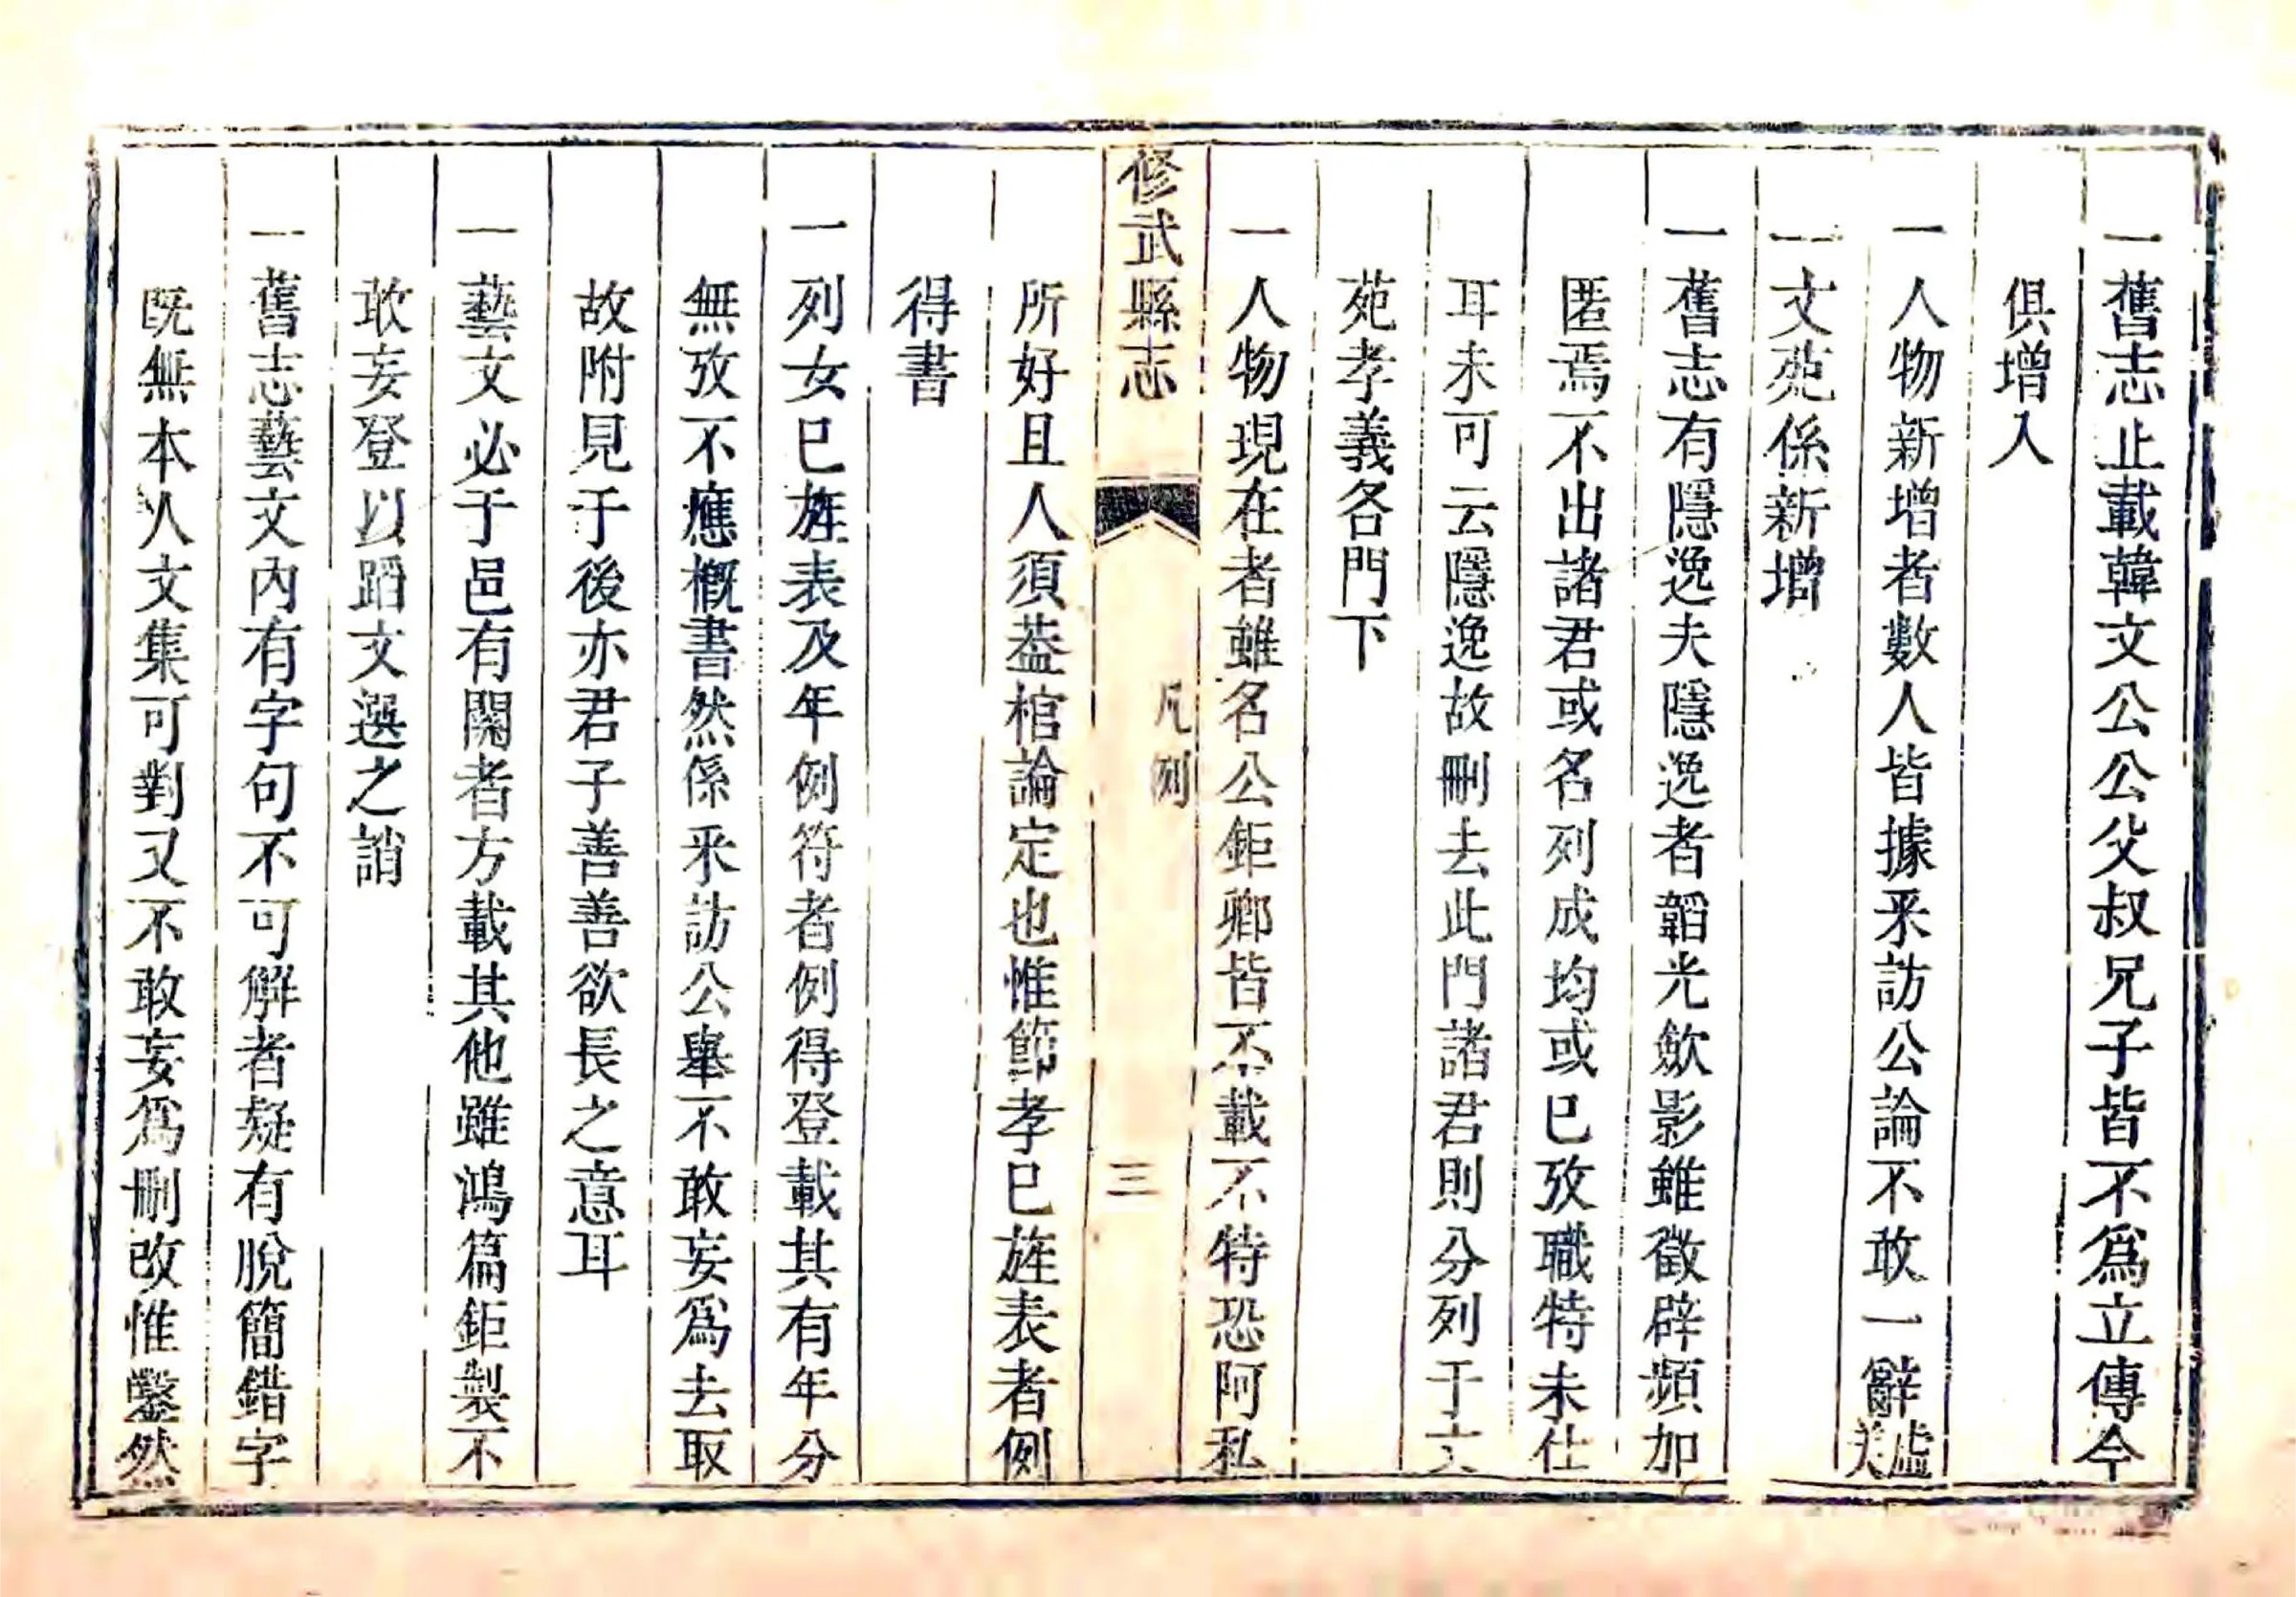 一舊志止載韓文公公父叔兄子皆不爲立傳今
俱增入
一人物新增者數人皆據采訪公論不敢一辭虛美
一文苑係新增
一舊志有隱逸夫隱逸者韜光歛影雖徵辟頻加
匿焉不出諸君或名列成均或已攷職特未仕
耳未可云隱逸故刪去此門諸君則分列于文
苑孝義各門下
一人物現在者雖名公鉅卿皆不載不特恐阿私
修武縣志
凡例
三
所好且人須葢棺論定也惟節孝已旌表者例
得書
一列女已旌表及年例符者例得登載其有年分
無攷不應概書然係采訪公舉不敢妄爲去取
故附見于後亦君子善善欲長之意耳
一藝文必于邑有關者方載其他雖鴻篇鉅製不
敢妄登以蹈文選之誚
一舊志藝文內有字句不可解者疑有脫簡錯字
既無本人文集可對又不敢妄爲刪改惟鑿然